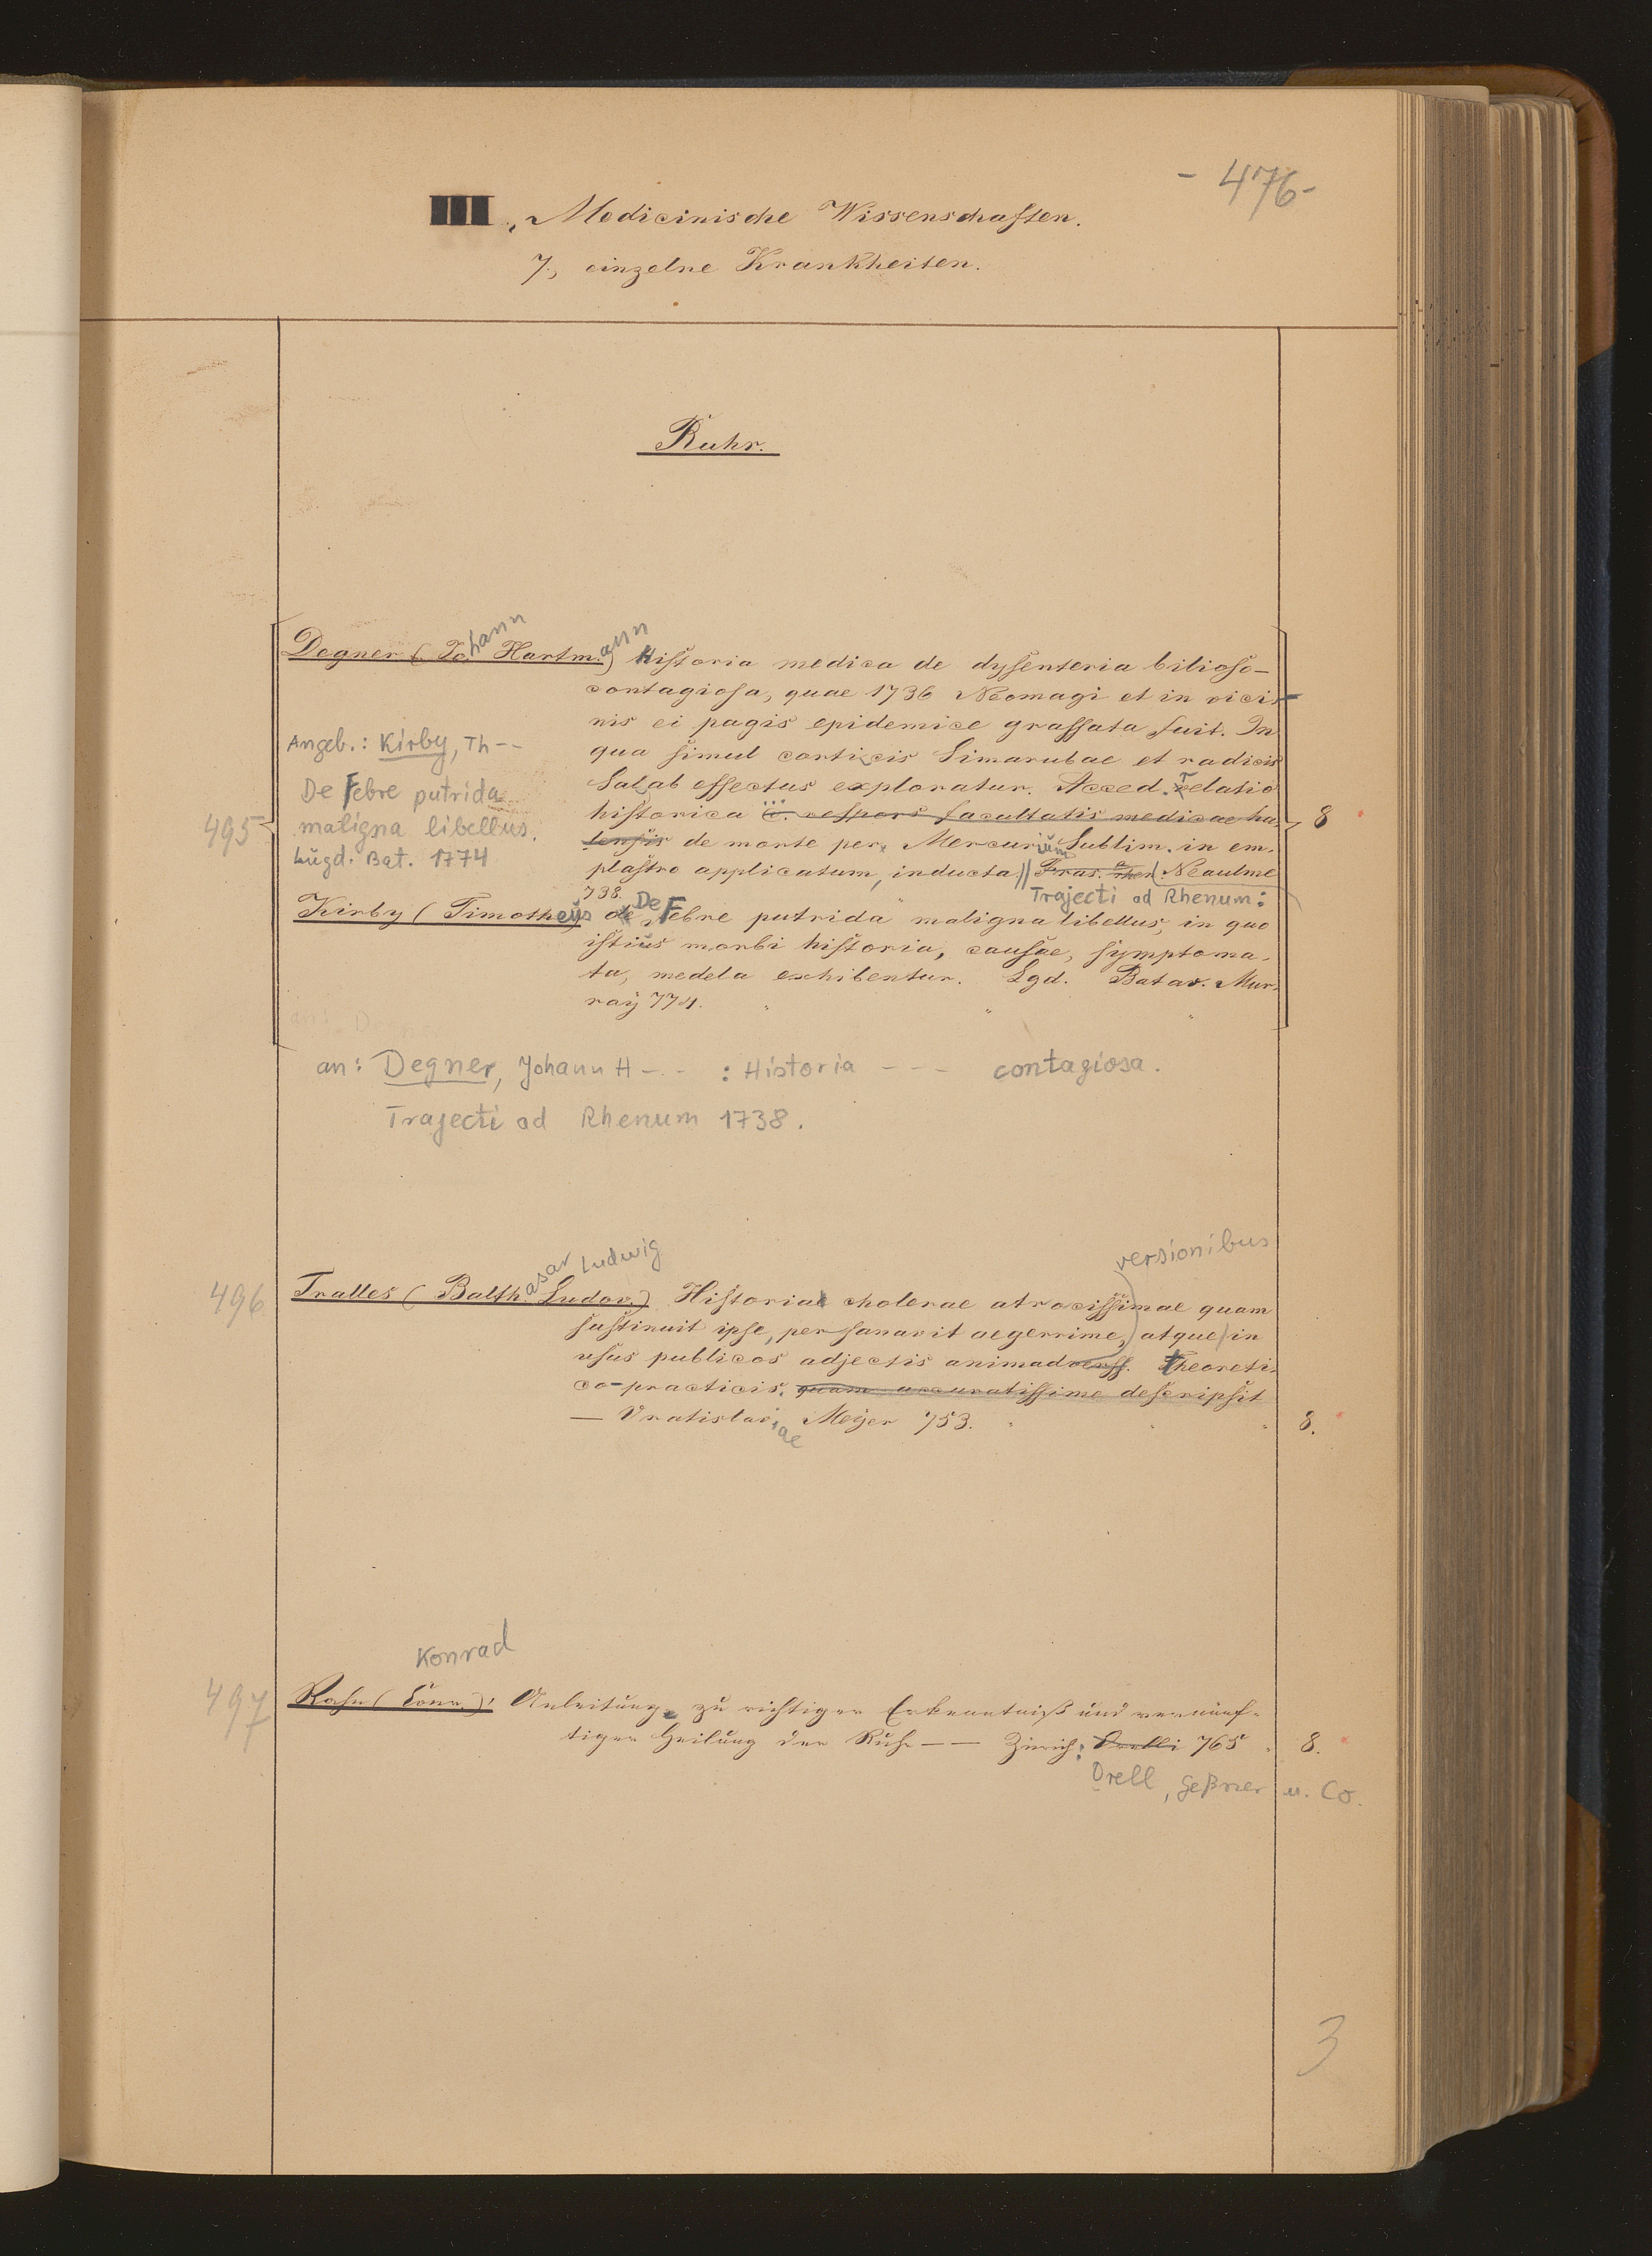 - 476 -
III., Medicinische Wissenschaften.
7., einzelne Krankheiten.
Ruhr.
Degner (Johann Hartmann) Historia medica de dysenteria bilioso-
contagiosa, quae 1736 Neomagi et in vici-
nis ei pagis epidemice grassata fuit. In
qua simul corticis Simarubae et radicis
Salab effectus exploratur. Acced. relatio
historica c. respons facultatis medicae ha-
lensis de morte per Mercurium Sublim. in em-
plastro applicatum, inducta // Tras. : Neaulme
738.
Trajecti ad Rhenum:
Angeb.: Kirby, Th--
De Febre putrida
maligna libellus.
Lugd. Bat. 1774
495
8
Kirby (Timotheus De Febre putrida maligna libellus, in quo
istius morbi historia, causae, symptoma-
ta, medela exhibentur. Lgd. Batav. Mur-
ray 774.
an: Degner, Johann H--- : Historia --- contagiosa.
Trajecti ad Rhenum 1738.
asar Ludwig
versionibus
496 Tralles (Balth. Ludov.) Historia cholerae atrocissimae quam
sustinuit ipse, persanavit aegerrime, atque in
usus publicos adjectis animadverss. theoreti-
co-practicis. quam accuratissime descripsit
— Vratislaviae Meyer 753. 8.
Konrad
497 Rahn (Conr.), Anleitung zu richtiger Erkenntniß und vernünf-
tiger Heilung der Ruhr — — Zürich: Orelli 765 8.
Orell, Geßner u. Co.
3